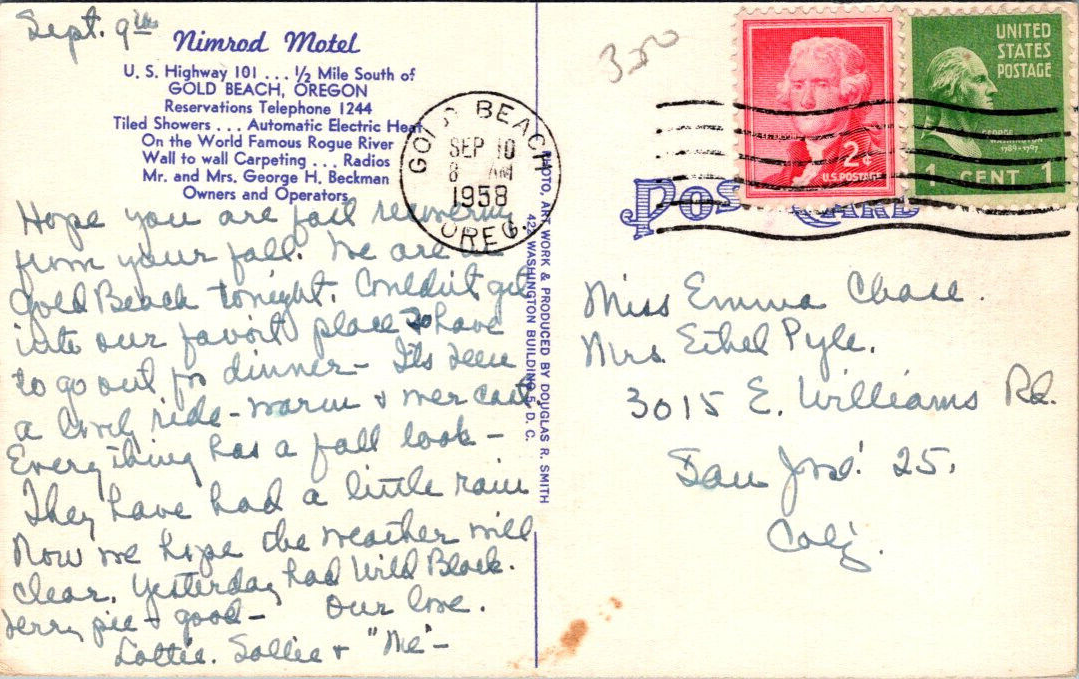 Sept. 9th
Nimrod Motel
U. S. Highway 101 . . . ½ Mile South of
GOLD BEACH, OREGON
Reservations Telephone 1244
Tiled Showers . . . Automatic Electric Heat
On the World Famous Rogue River
Wall to wall Carpeting . . . Radios
Mr. and Mrs. George H. Beckman
Owners and Operators
Hope you are fast recovering
from your fall. We are at
Gold Beach tonight. Couldn't get
into our favorit place so have
to go out for dinner - Its been
a lovely ride - warm & over cast,
Everything has a fall look -
They have had a little rain
Now we hope the weather will
clear. Yesterday had Wild Black.
berry pie & good - Our love.
Lottie. Sollie & "Me" -
PHOTO, ART WORK & PRODUCED BY DOUGLAS R. SMITH
42 WASHINGTON BUILDING 5, D. C.
GOLD BEACH
SEP 10
8 AM
1958
OREG.
350
2¢
U.S. POSTAGE
UNITED
STATES
POSTAGE
GEORGE
WASHINGTON
1789-1797
1 CENT 1
POST CARD
Miss Emma Chase.
Mrs. Ethel Pyle.
3015 E. Williams Rd.
San José 25.
Calif.